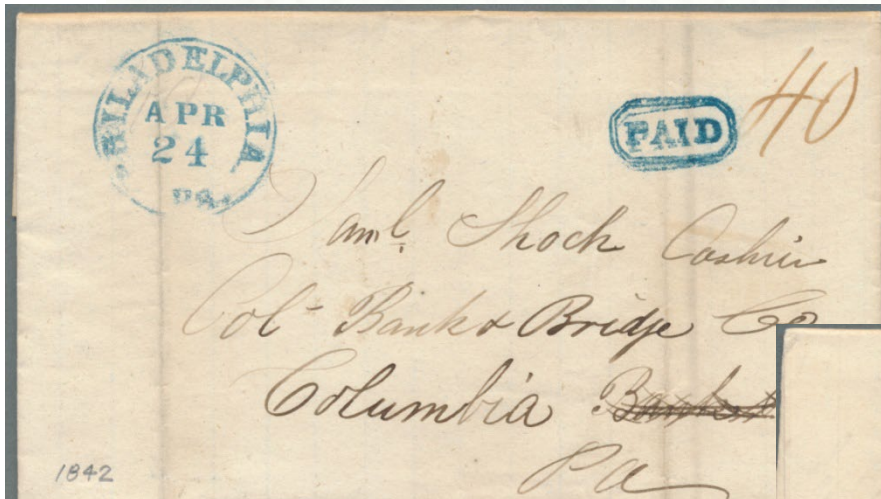 PHILADELPHIA
APR
24
Pa.
PAID
40
Saml. Shoch Cashier
Col- Bank & Bridge Co
Columbia
Pa
1842